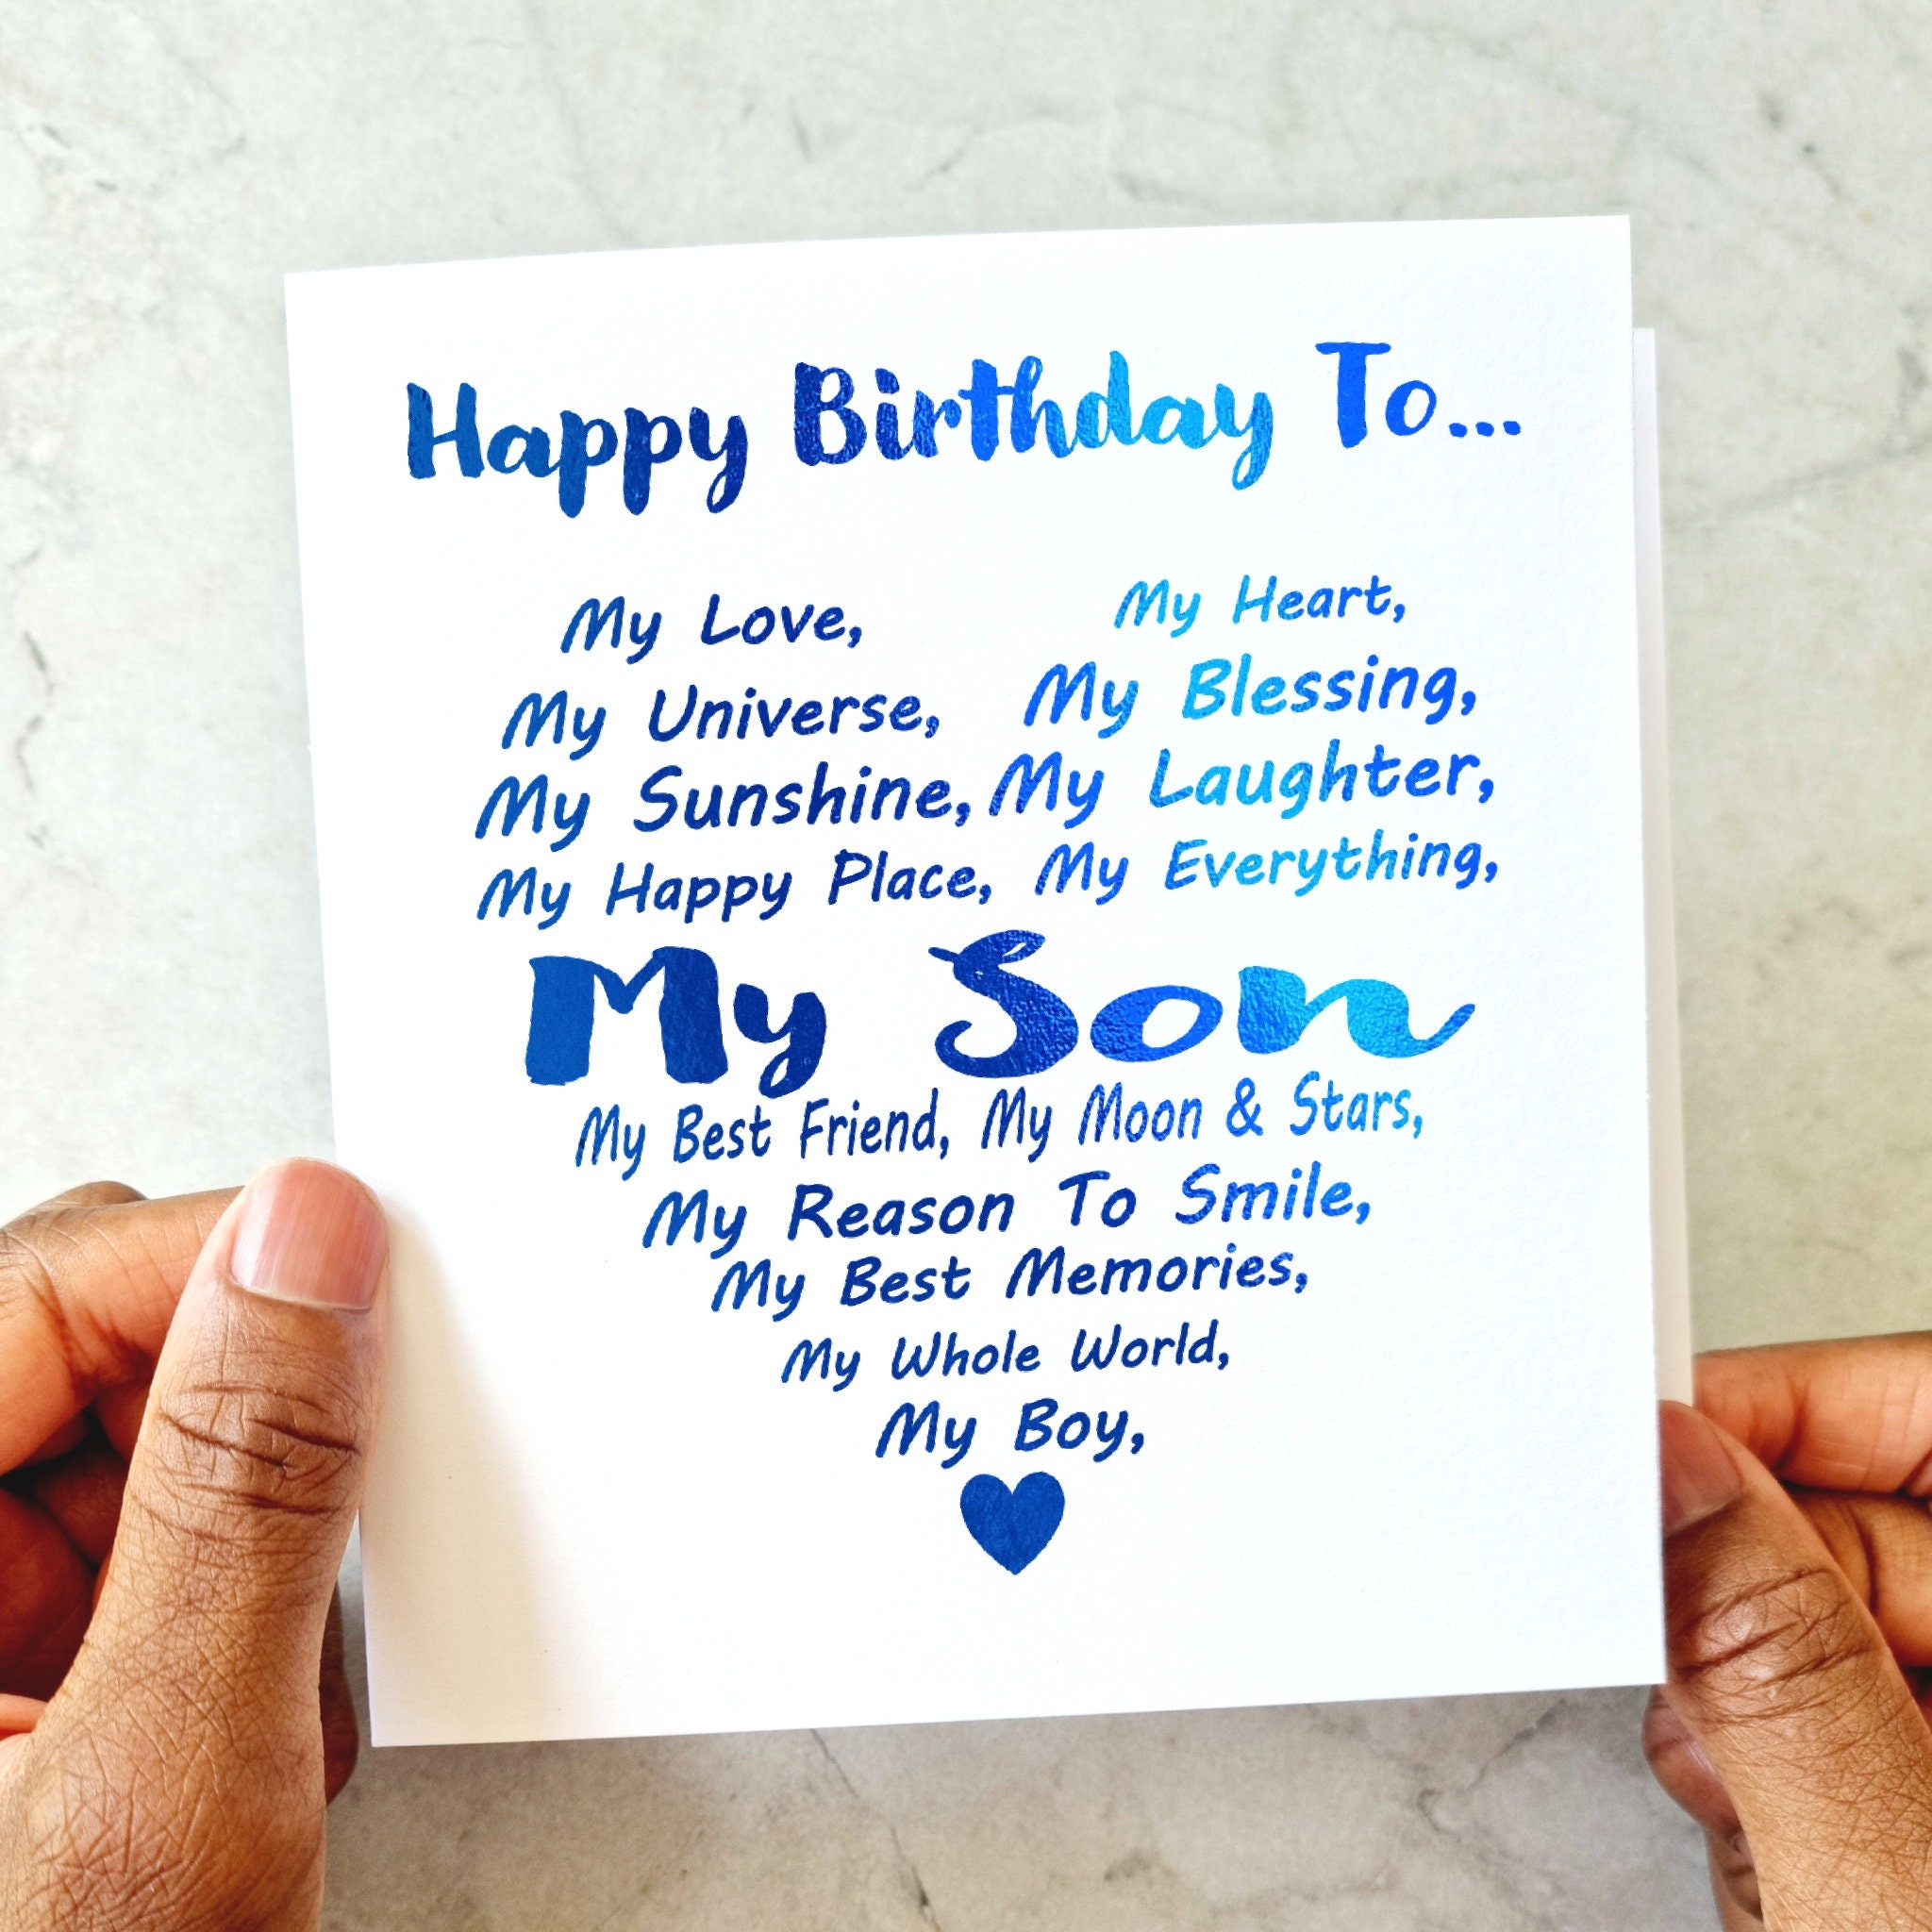 Happy Birthday To...
My Love, My Heart,
My Universe, My Blessing,
My Sunshine, My Laughter,
My Happy Place, My Everything,
My Son
My Best Friend, My Moon & Stars,
My Reason To Smile,
My Best Memories,
My Whole World,
My Boy,